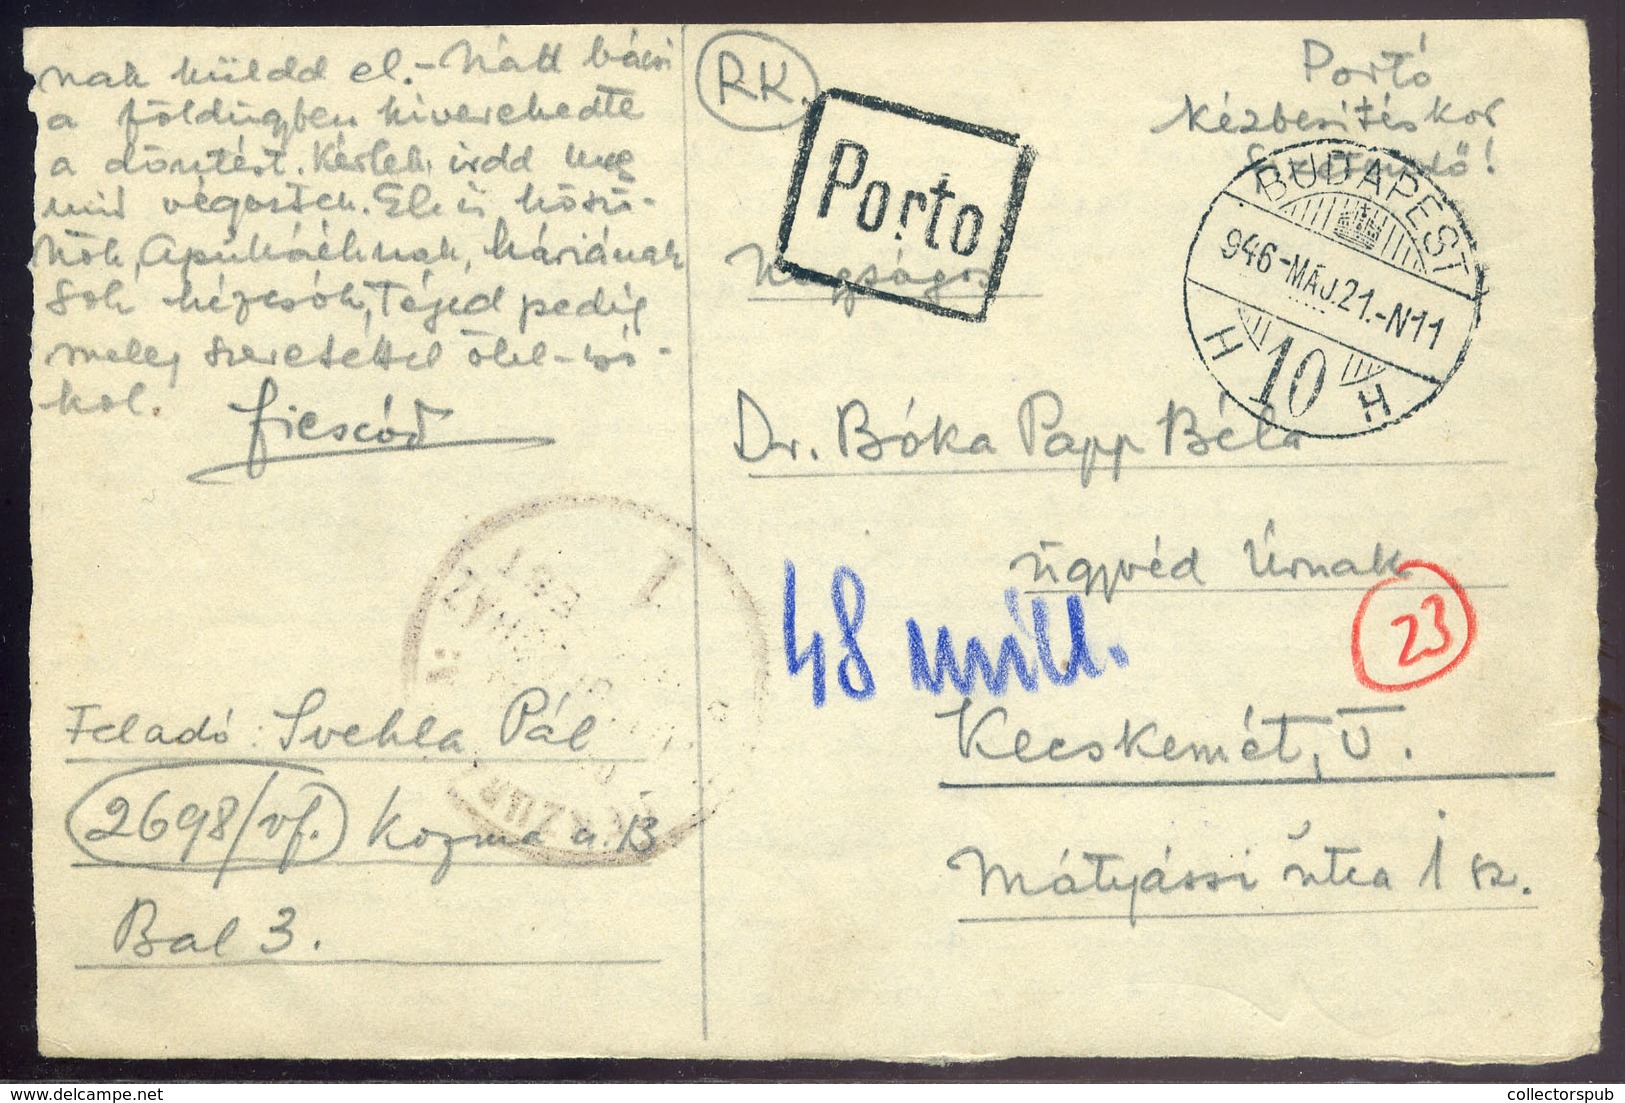 nak küldd el.- Nátt bácsi
a földügyben kiverekedte
a döntést. Kérlek írdd meg
mit végeztek.
kök, Apukáéknak, Máriának
sok kézcsók, Téged pedig
meleg szeretettel ölel-csó-
kol.
Feladó: Svehla Pál
2698/vf. Kozma u. 13
Bal 3.
RK.
Porto
Portó
kézbesítéskor
fizetendő!
BUDAPEST
946-MÁJ.21.-N11
H 10 H
Nagyságos
Dr. Bóka Papp Béla
ügyvéd Úrnak
48 mill.
23
Kecskemét, V.
Mátyássi útca 1 sz.
1
collectorspub